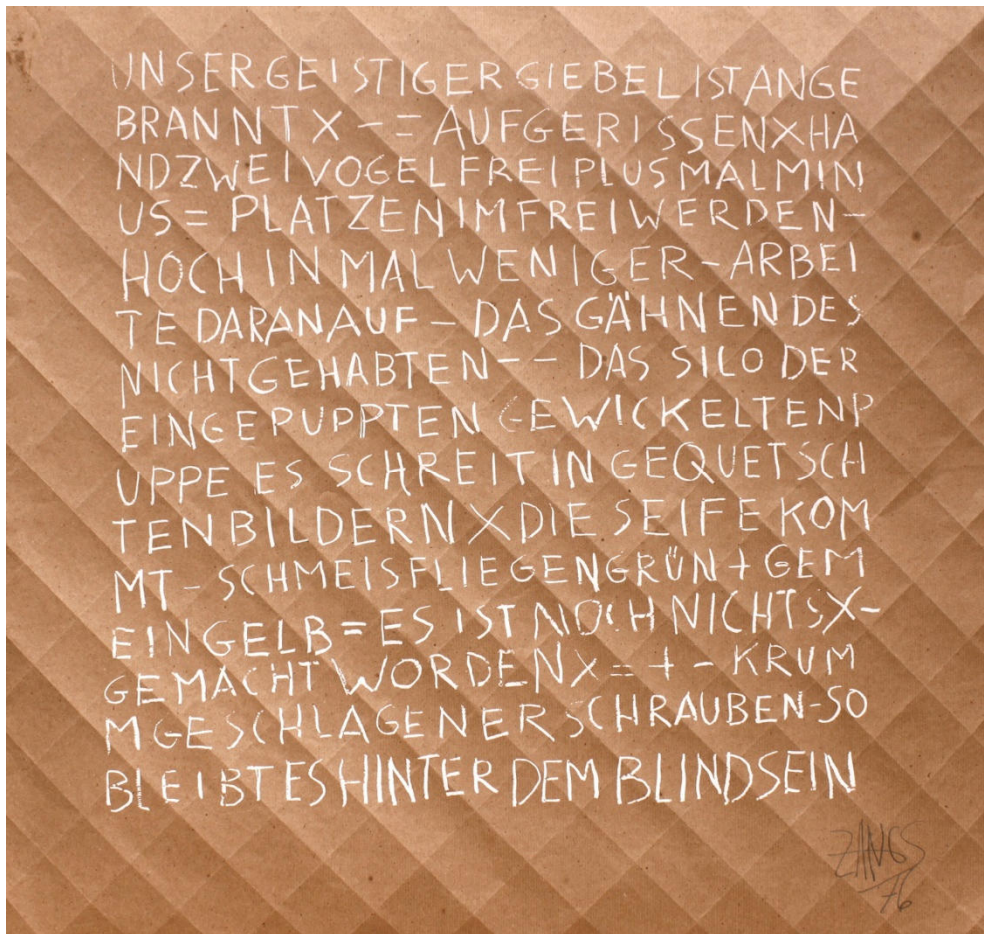 UNSERGEISTIGERGIEBELISTANGE
BRANNTX-=AUFGERISSENXHA
NDZWEIVOGELFREIPLUSMALMIN
US=PLATZENIMFREIWERDEN-
HOCHINMALWENIGER-ARBEI
TE DARANAUF-DAS GÄHNENDES
NICHTGEHABTEN-- DAS SILO DER
EINGEPUPPTEN GEWICKELTENP
UPPE ES SCHREIT IN GEQUETSCH
TENBILDERNXDIE SEIFEKOM
MT-SCHMEISFLIEGENGRÜN+GEM
EINGELB=ES IST NOCH NICHTSX-
GEMACHTWORDENX=+-KRUM
MGESCHLAGENERSCHRAUBEN-SO
BLEIBTESHINTER DEM BLINDSEIN
ZANGS
76